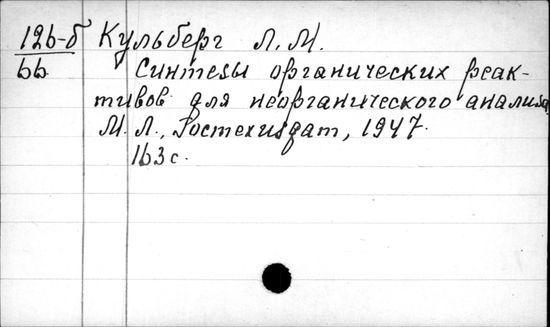 12б-б Кульберг Л.М.
66 Синтезы органических реак-
тивов для неорганического анализа,
М. Л., Гостехиздат, 1947.
163 с.